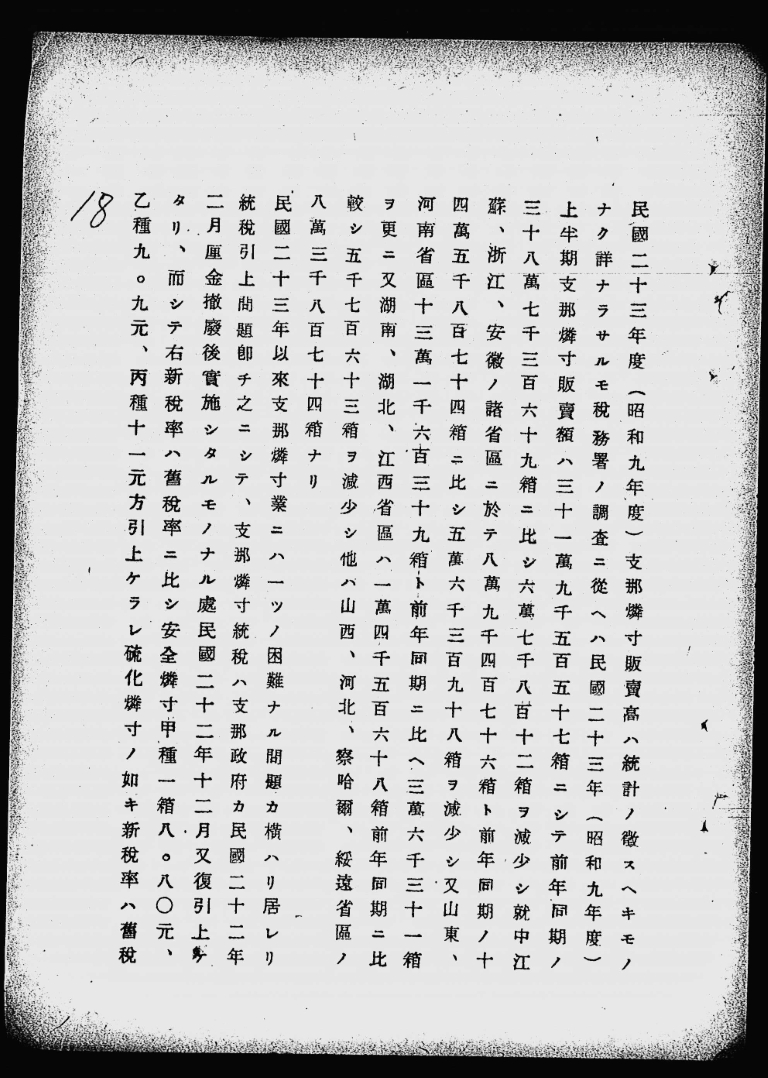 民國二十三年度(昭和九年度)支那燐寸販賣高ハ統計ノ徵スヘキモノ
ナク詳ナラサルモ稅務署ノ調査ニ從ヘハ民國二十三年(昭和九年度)
上半期支那燐寸販賣額ハ三十一萬九千五百五十七箱ニシテ前年同期ノ
三十八萬七千三百六十九箱ニ比シ六萬七千八百十二箱ヲ減少シ就中江
蘇、浙江、安徽ノ諸省區ニ於テ八萬九千四百七十六箱ト前年同期ノ十
四萬五千八百七十四箱ニ比シ五萬六千三百九十八箱ヲ減少シ又山東、
河南省區十三萬一千六百三十九箱ト前年同期ニ比ヘ三萬六千三十一箱
ヲ更ニ又湖南、湖北、江西省區ハ一萬四千五百六十八箱前年同期ニ比
較シ五千七百六十三箱ヲ減少シ他ハ山西、河北、察哈爾、綏遠省區ノ
八萬三千八百七十四箱ナリ
民國二十三年以來支那燐寸業ニハ一ツノ困難ナル問題カ橫ハリ居レリ
統稅引上問題卽チ之ニシテ、支那燐寸統稅ハ支那政府カ民國二十二年
二月厘金撤廢後實施シタルモノナル處民國二十二年十二月又復引上ケ
タリ、而シテ右新稅率ハ舊稅率ニ比シ安全燐寸甲種一箱八。八〇元、
乙種九。九元、丙種十一元方引上ケラレ硫化燐寸ノ如キ新稅率ハ舊稅
18